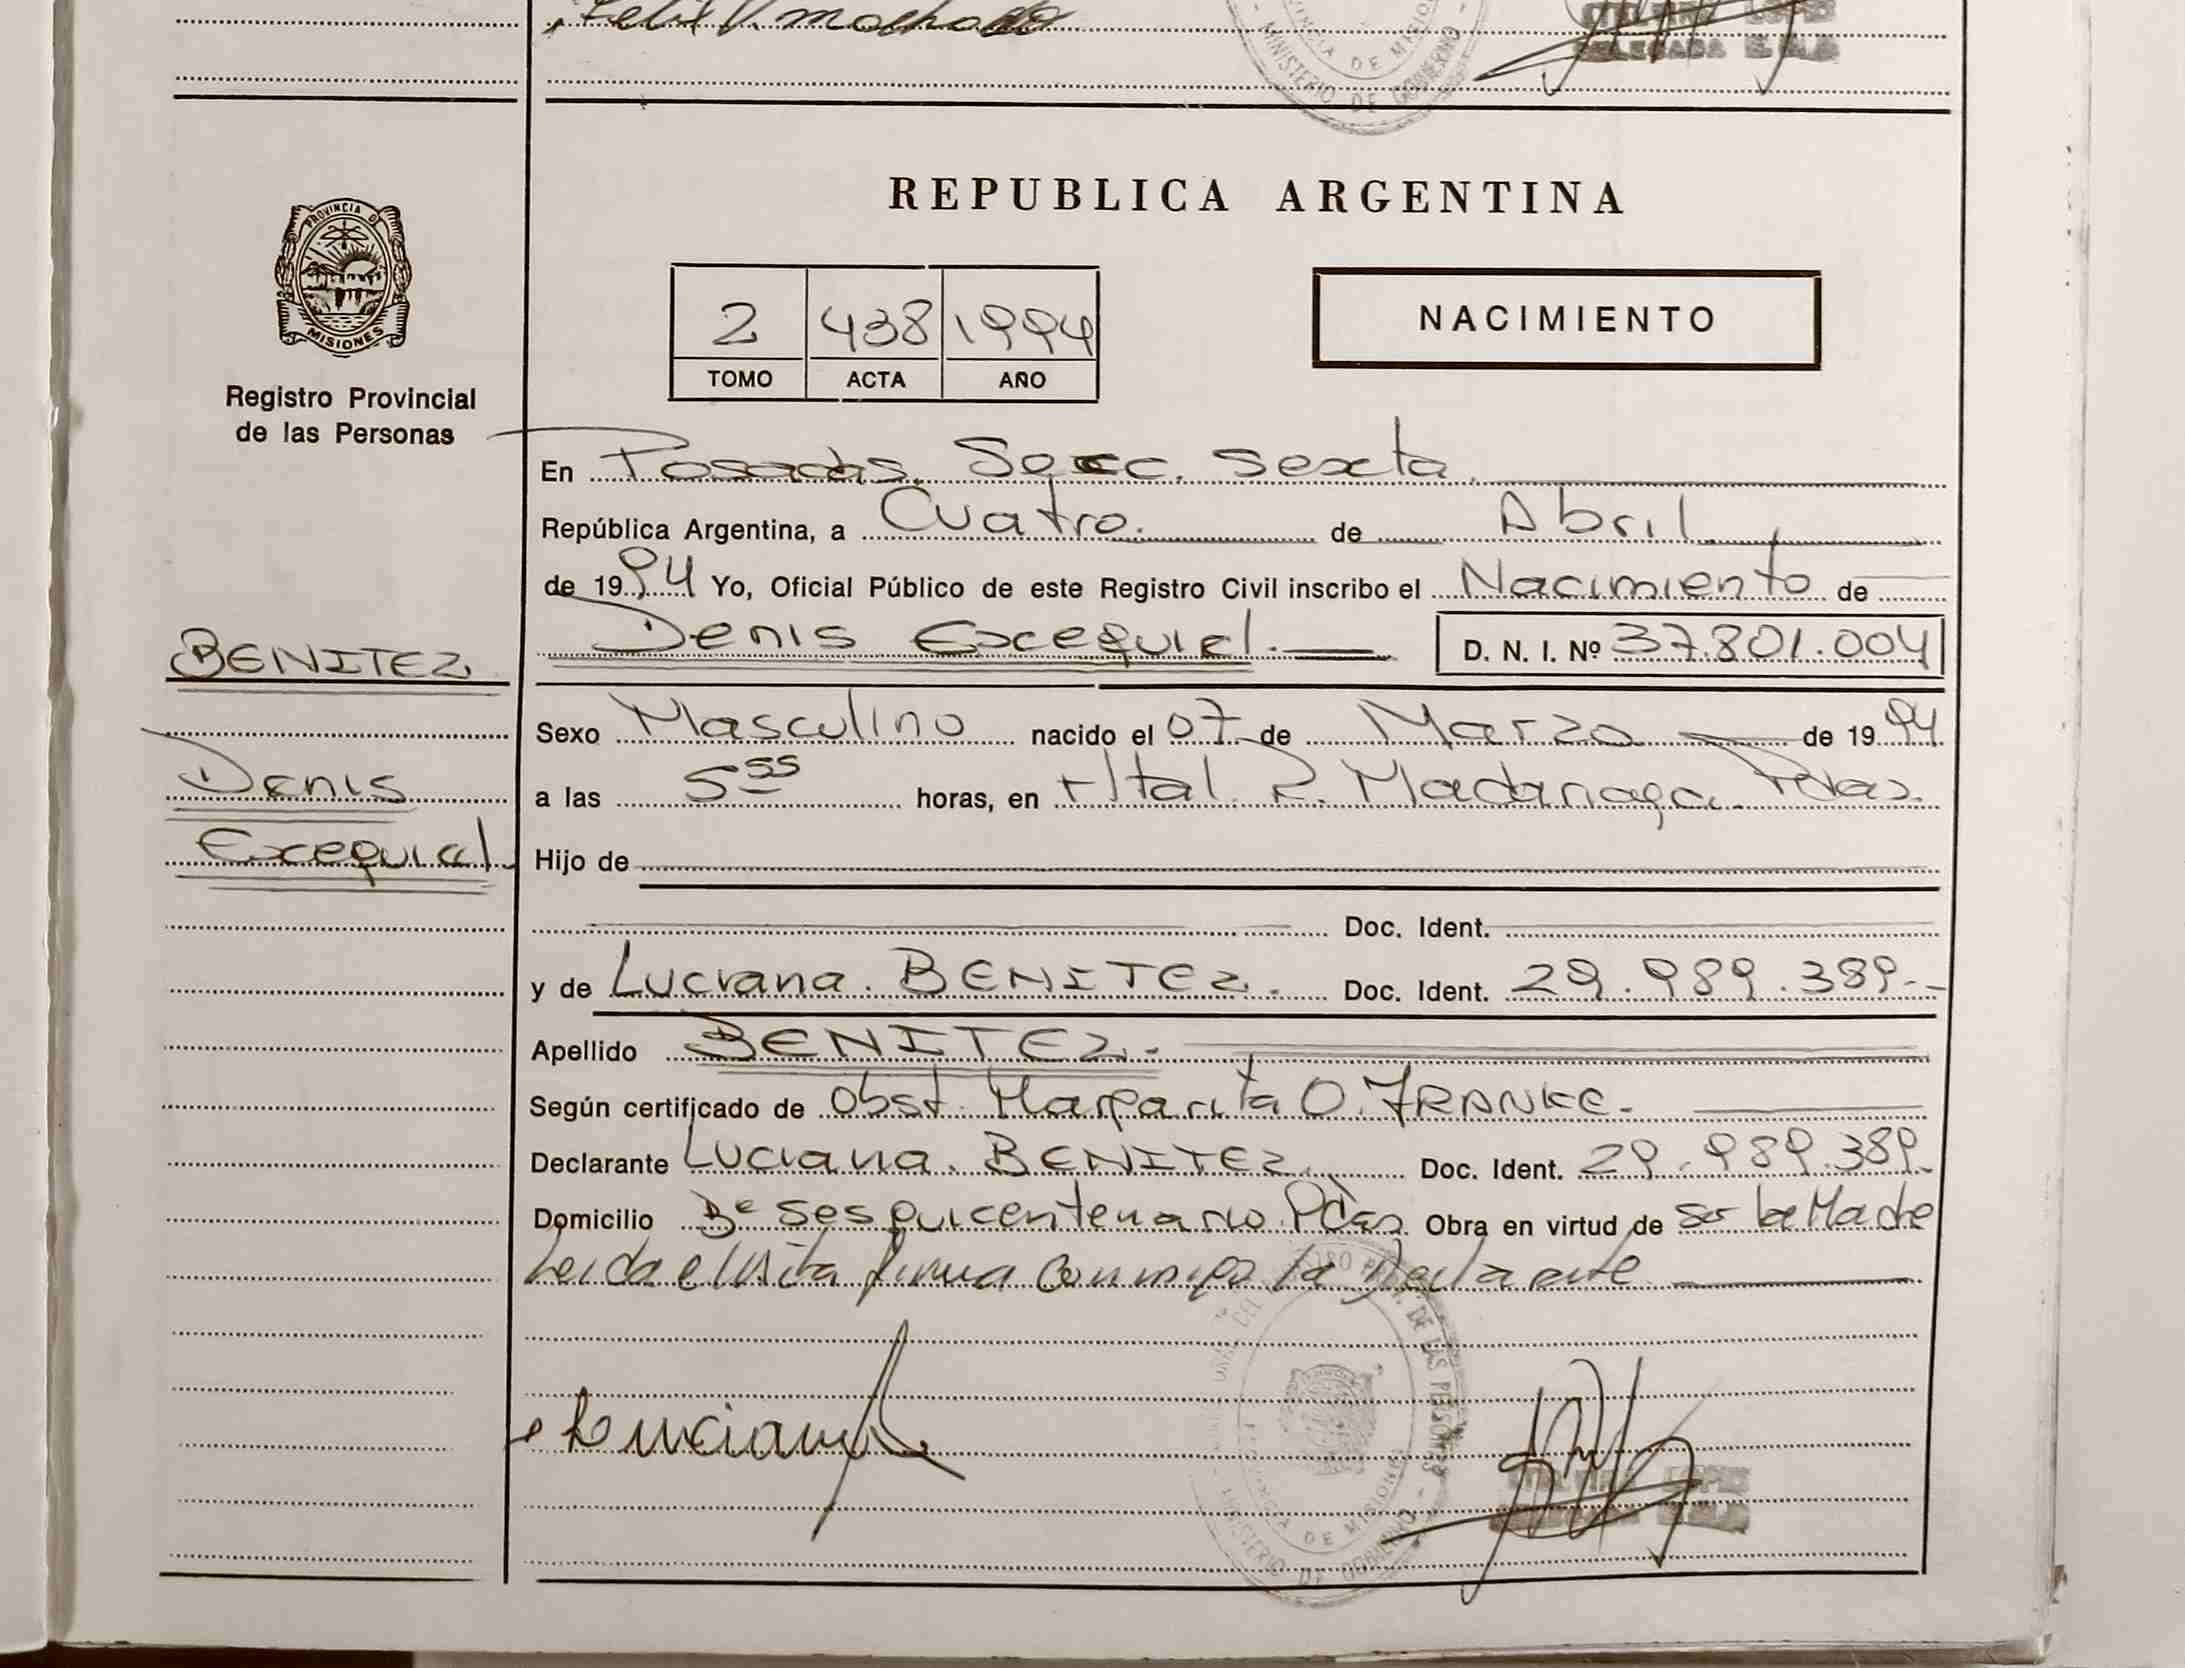 Felix V. Machado
MINISTERIO DE GOBIERNO
DELEGADA
PROVINCIA D
MISIONES
Registro Provincial
de las Personas
REPUBLICA ARGENTINA
2 438 1994
TOMO ACTA AÑO
NACIMIENTO
En Posadas Secc. Sexta
República Argentina, a Cuatro. de Abril
de 1994 Yo, Oficial Público de este Registro Civil inscribo el Nacimiento de
BENITEZ
Denis Excequiel. D. N. I. Nº 37.801.004
Sexo Masculino nacido el 07 de Marzo de 1994
Denis
a las 5 55 horas, en Htal. R. Madariaga Pdas.
Excequiel
Hijo de
Doc. Ident.
y de Luciana. BENITEZ. Doc. Ident. 29.989.389.-
Apellido BENITEZ.
Según certificado de Obst. Margarita O. FRANKE.
Declarante Luciana. BENITEZ. Doc. Ident. 29.989.389.
Domicilio Bº Sesquicentenario Pdas. Obra en virtud de ser la Madre
Leida el Acta firma conmigo la Declarante
Luciana
DE LAS PERSONAS
PROVINCIA DE MISIONES
MINISTERIO DE GOBIERNO
LOPEZ